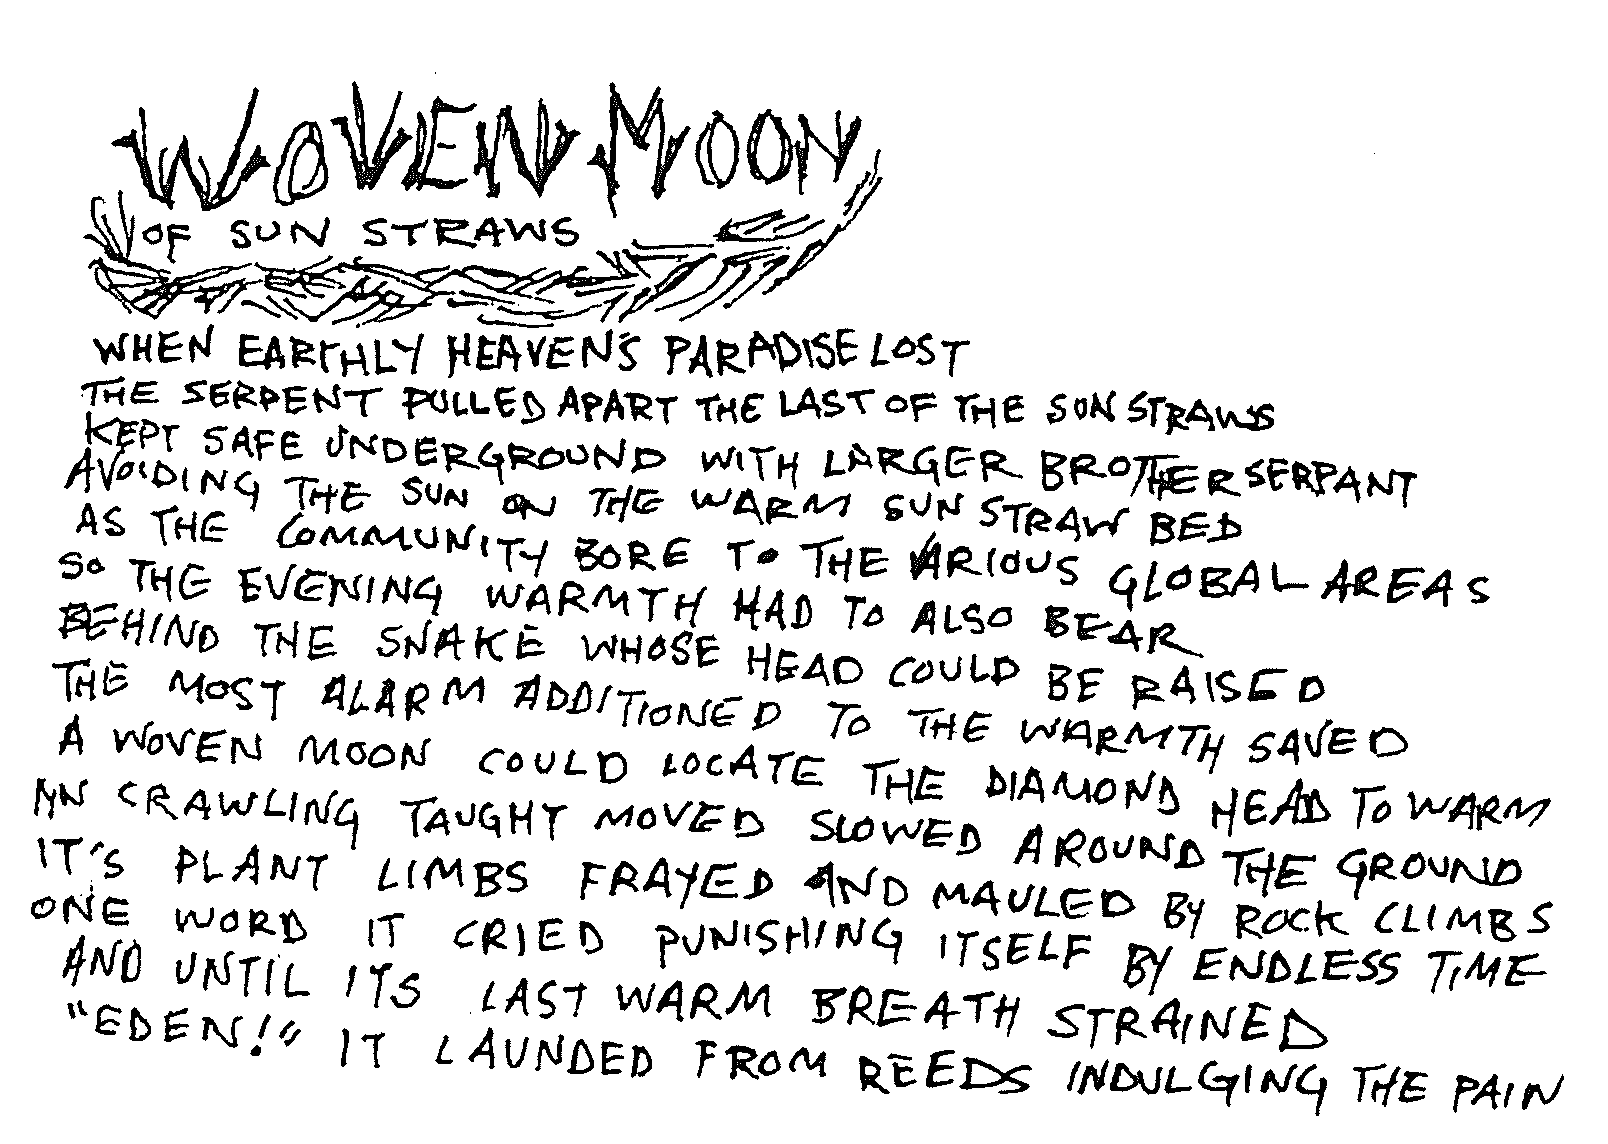 WOVEN MOON
OF SUN STRAWS
WHEN EARTHLY HEAVEN'S PARADISE LOST
THE SERPENT PULLED APART THE LAST OF THE SUN STRAWS
KEPT SAFE UNDERGROUND WITH LARGER BROTHER SERPANT
AVOIDING THE SUN ON THE WARM SUN STRAW BED
AS THE COMMUNITY BORE TO THE VARIOUS GLOBAL AREAS
SO THE EVENING WARMTH HAD TO ALSO BEAR
BEHIND THE SNAKE WHOSE HEAD COULD BE RAISED
THE MOST ALARM ADDITIONED TO THE WARMTH SAVED
A WOVEN MOON COULD LOCATE THE DIAMOND HEAD TO WARM
CRAWLING TAUGHT MOVED SLOWED AROUND THE GROUND
IT'S PLANT LIMBS FRAYED AND MAULED BY ROCK CLIMBS
ONE WORD IT CRIED PUNISHING ITSELF BY ENDLESS TIME
AND UNTIL ITS LAST WARM BREATH STRAINED
"EDEN!" IT LAUNDED FROM REEDS INDULGING THE PAIN